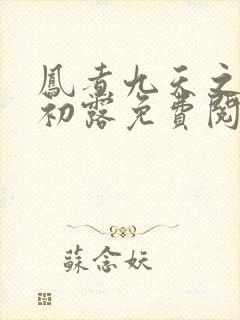 鳳煮九天之
初露免費閱
蘇念妖